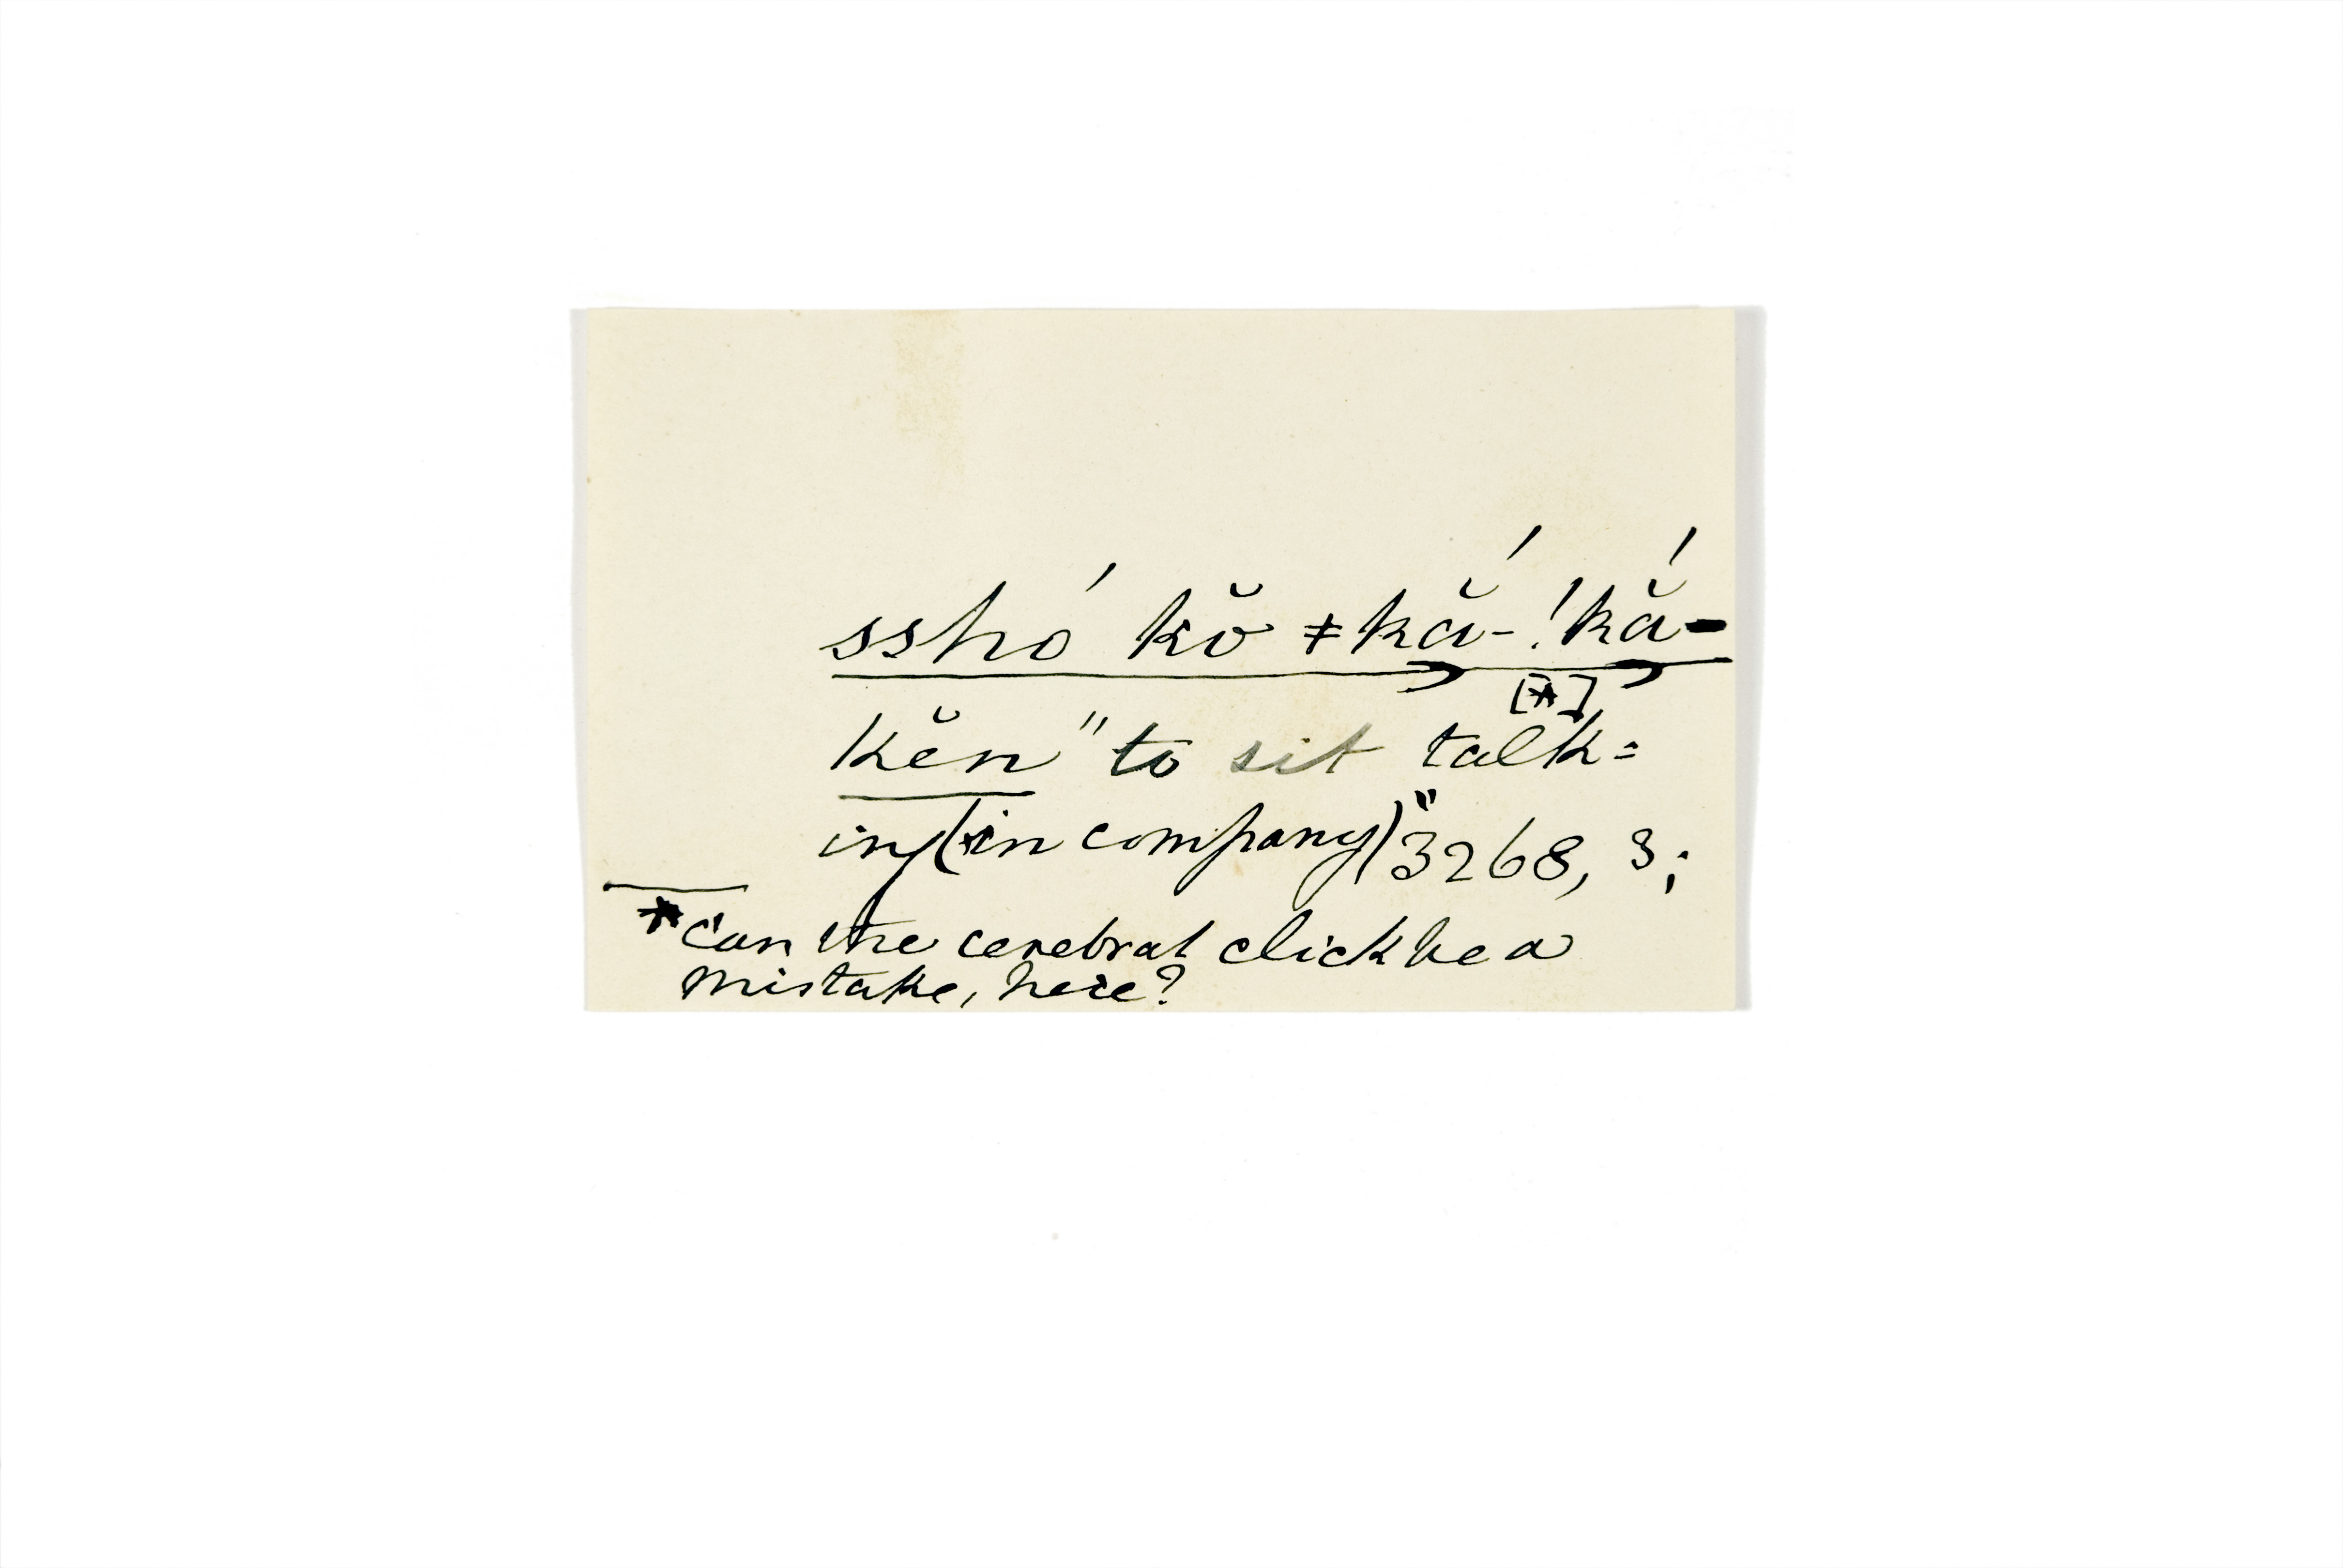 sshó kŏ ǂkắ-!kắ-
[*]
kĕn "to sit talk=
ing (in company)" 3268, 3;
* Can the cerebral click be a
mistake, here?